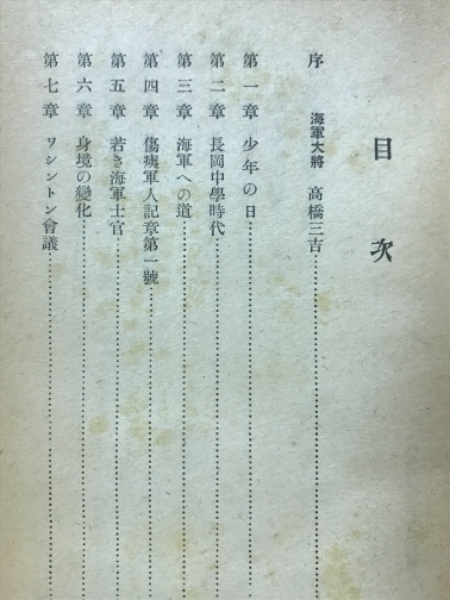 目次
序 海軍大將 高橋三吉
第一章 少年の日
第二章 長岡中學時代
第三章 海軍への道
第四章 傷痍軍人記章第一號
第五章 若き海軍士官
第六章 身境の變化
第七章 ワシントン會議